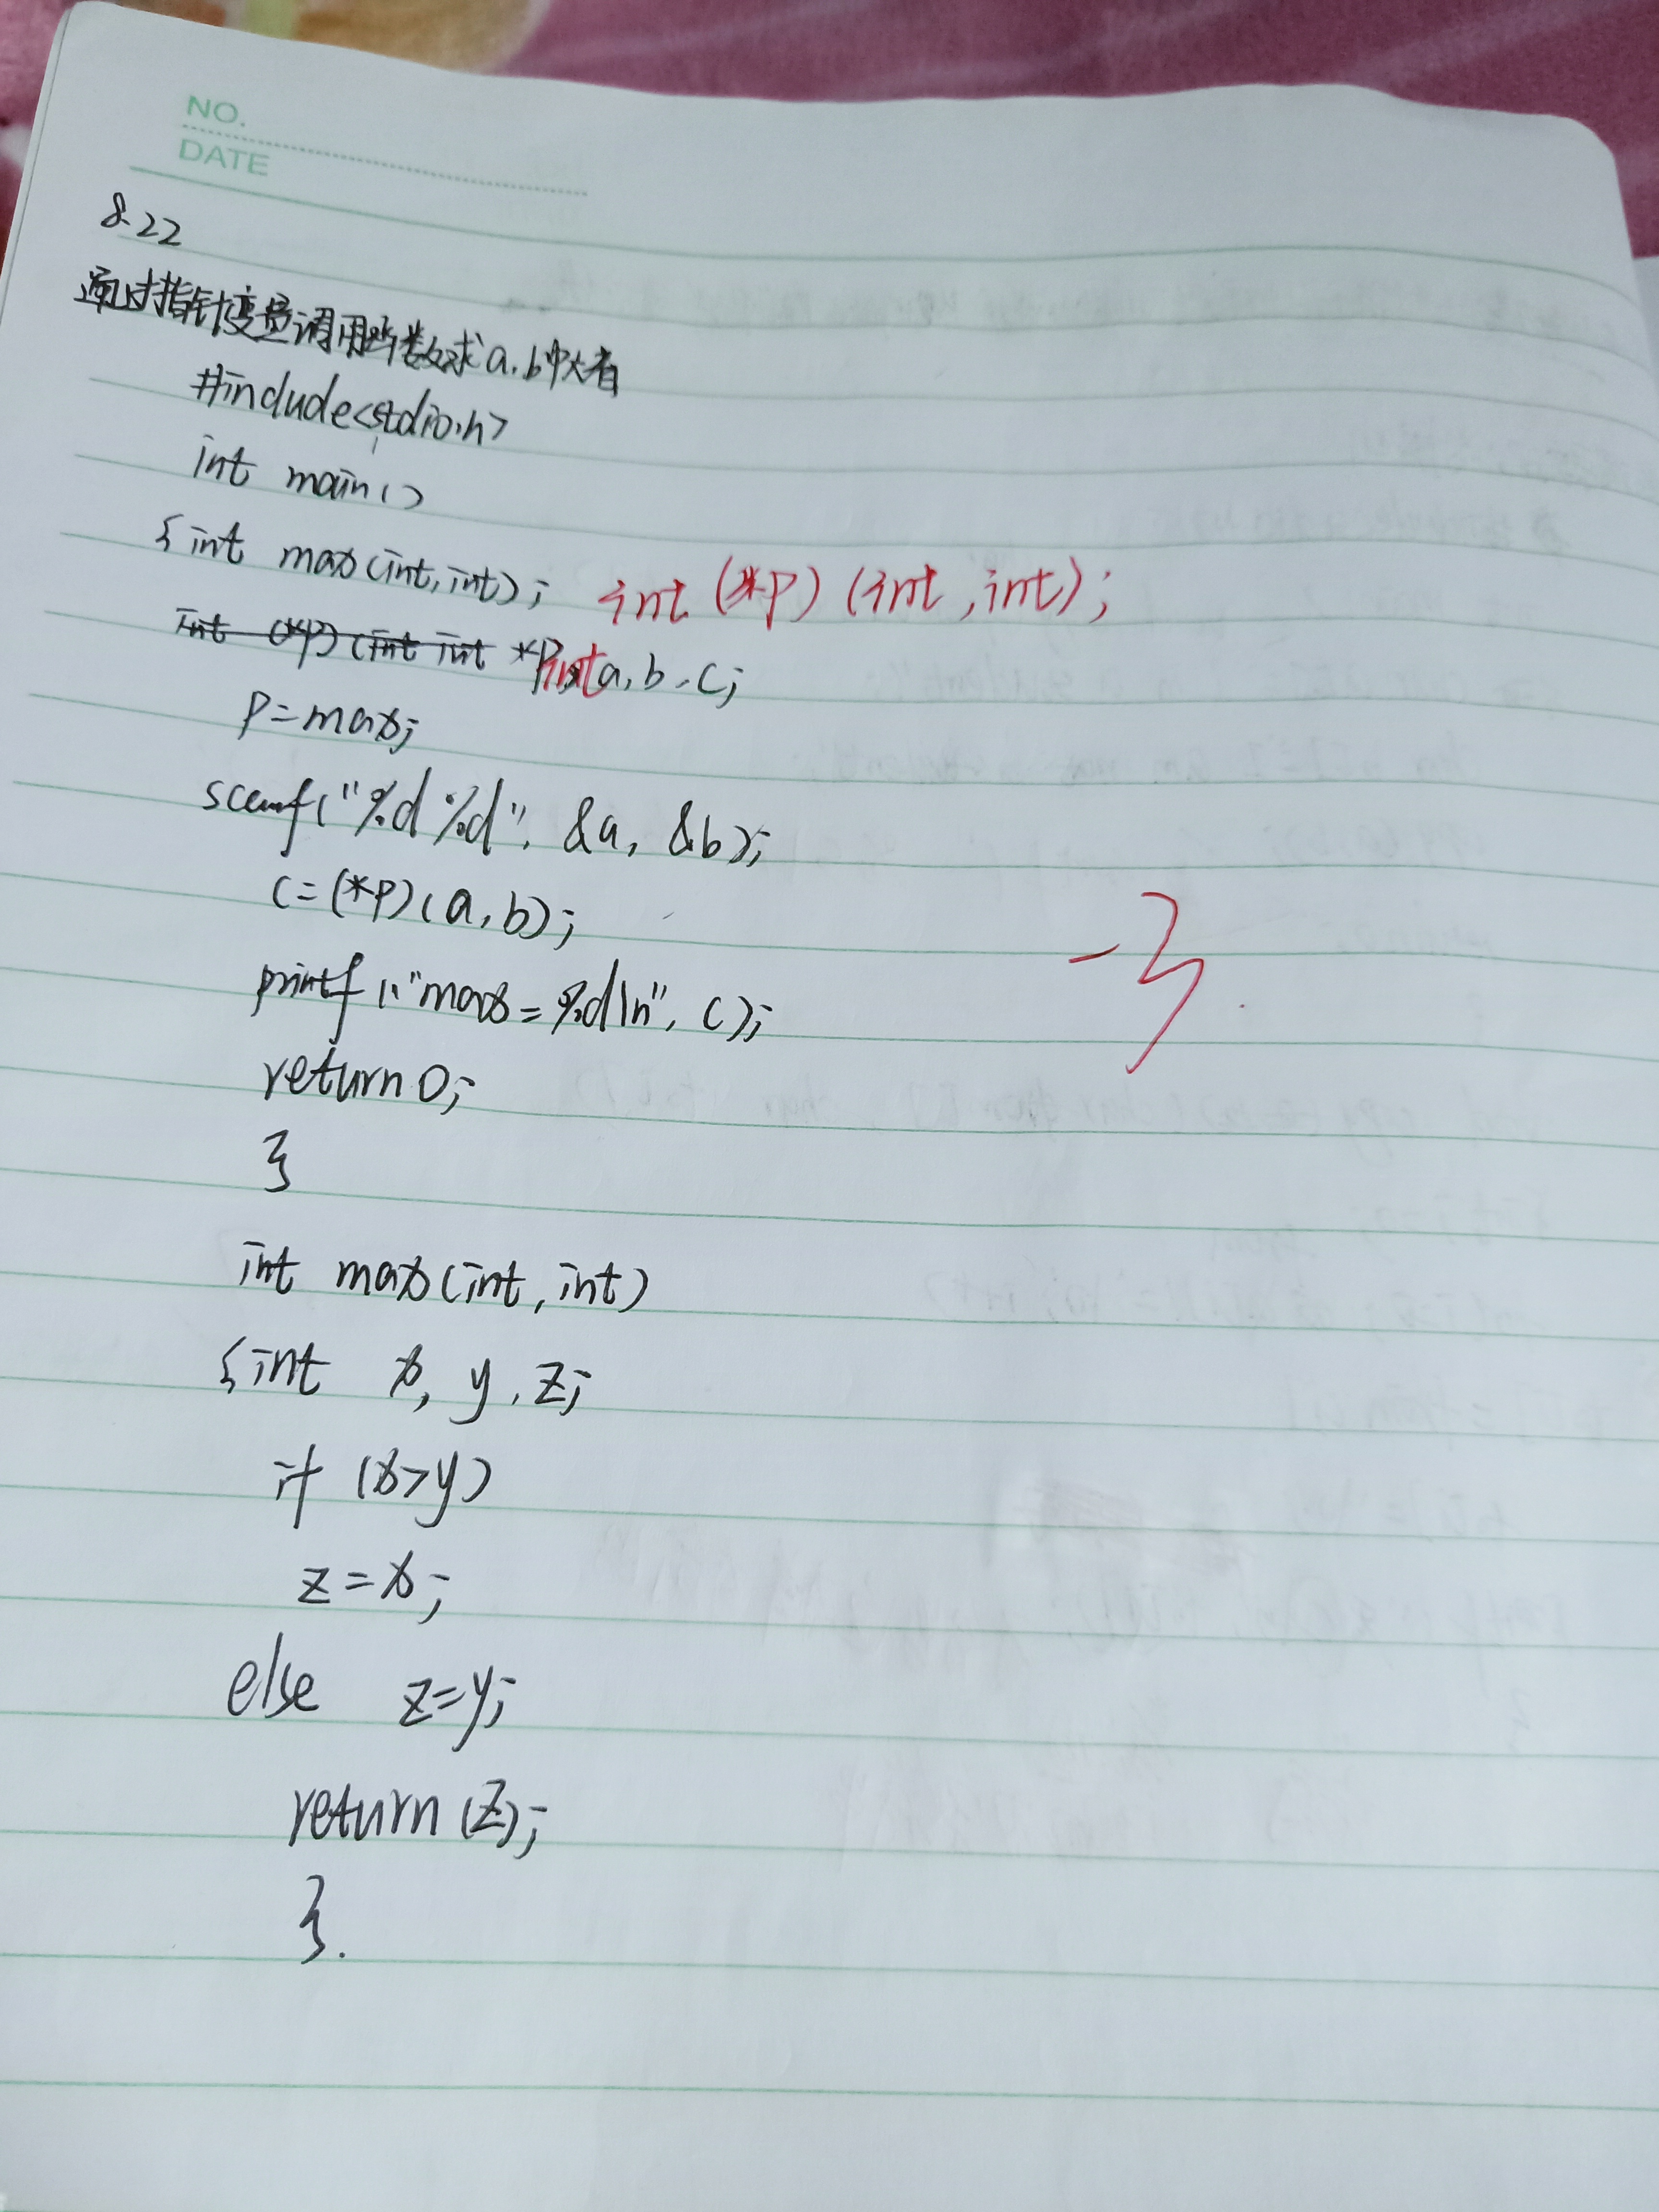 NO.
DATE
8.22
通过指针变量调用函数求a,b中大者
#include<stdio.h>
int main()
{int max(int,int); int (*p) (int,int);
int (*p)(int int *p, int a,b,c;
p=max;
scanf("%d %d", &a, &b);
c=(*p)(a,b);
printf("max=%d\n", c);
return 0;
}
-3
int max(int,int)
{int x,y,z;
if (x>y)
z=x;
else z=y;
return(z);
}.